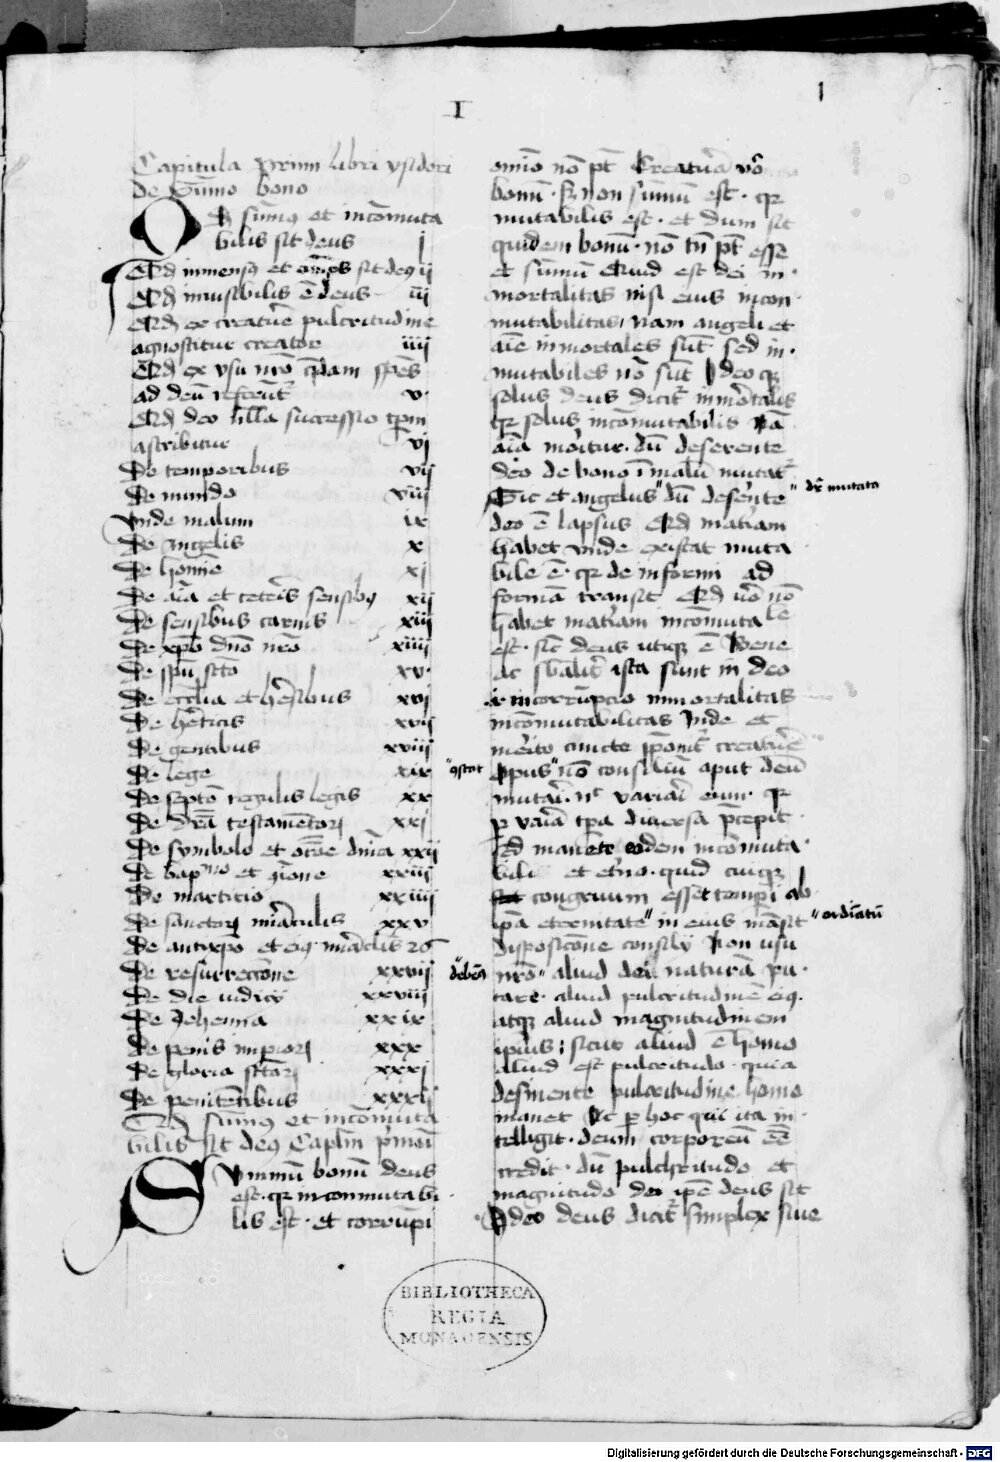 I
1
Capitula primi libri ysidori
de Su̅mo bono
Qd su̅mꝰ et inco̅muta
bilis sit deus j
Qd inmensꝰ et om̅ps sit deꝰ ij
Qd inuisibilis e̅ deus iij
Qd ex creature pulcritudine
agnoscitur creator iiij
Qd ex vsu nr̅o q̅dam spe̅s
ad deu̅ referunt̅ v
Qd deo nulla successio tp̅m
ascribitur vj
De temporibus vij
De mundo viij
Vnde malum ix
De Angelis x
De ho̅ie xj
De ai̅a et ceter̅is sensibꝰ xij
De sensibus carnis xiij
De xp̅o dn̅o nr̅o xiiij
De spu̅ sc̅to xv
De eccl̅ia et he̅sibus xvj
De he̅ticis xvij
De gentibus xviij
De lege xix
De septe̅ regulis legis xx
De dr̅a testamentorꝝ xxj
De symbolo et oro̅e dn̅ica xxij
De bap̅mo et q̅ione xxiij
De martirio xxiiij
De sanctorꝝ mi̅aculis xxv
De antixp̅o et eiꝰ mi̅aclis 26
De resurrecco̅ne xxvij
De die iudicij xxviij
De Jehenna xxix
De penis impiorꝝ xxx
De gloria sc̅torꝝ xxxj
De penitentibus xxxij
Qd su̅mꝰ et inco̅muta
bilis sit deꝰ Caplm̅ pri̅mu̅
Summu̅ bonu̅ deus
est qr̅ inconmutabi
lis est et corru̅pi
omi̅o no̅ pt̅ Creatura vo̅
bonu̅ sꝫ non su̅mu̅ est qr̅
mutabilis est et dum sit
quidem bonu̅ no̅ tn̅ pt̅ esse
et su̅mu̅ Quid est dei in
mortalitas nisi eius incon
mutabilitas nam angeli et
ai̅e inmortales su̅t sed in
mutabiles no̅ su̅t Jdeoqꝫ
solus deus dicit̅ inmo̅talis
qr̅ solus inco̅mutabilis Na̅
ai̅a mo̅itur du̅ deserente
deo de bono i̅ malu̅ mutat̅
Sic et angelus " du̅ deser̅nte
" dr̅ mutato
deo e̅ lapsus Qd mat̅iam
habet vnde existat muta
bile e̅ qr̅ de informi ad
forma̅ transit Qd vo̅ no̅
habet mat̅iam inco̅mutabile
est sic̅ deus vtiqꝫ e̅ Bene
ac sb̅alit̅ ista sunt in deo
incorrupcio inmortalitas
inco̅mutabilitas Jnde et
me̅ito cuncte p̅ponit̅ creature
Opus " no̅ consiliu̅ aput deu̅
" ꝯstat
mutai̅ nc̅ variai̅ eum qr̅
p̲ va̅ia tp̅a diuersa p̅cepit
sed manente eodem inco̅muta
bili et et̅no quid cuiqꝫ
congruum esset tempori ab
ip̅a eternitate " in eius ma̅sit
" ordi̅atu̅
disposico̅ne consilij Non vsu
nr̅o " aliud dei natura̅ pu
" debe̅s
tare aliud pulcritudine̅ eiꝰ
atqꝫ aliud magnitudinem
ipsius sicut aliud e̅ homo
aliud est pulcritudo quia
desinente pulcritudine homo
manet Ac p̲ hoc qui ita in
telligit deum corporeu̅ e̅e
credit du̅ pulchritudo et
magnitudo dei ip̅e deus sit
Jdeo deus dicit̅ simplex siue
BIBLIOTHECA
REGIA
MONACENSIS
Digitalisierung gefördert durch die Deutsche Forschungsgemeinschaft - DFG